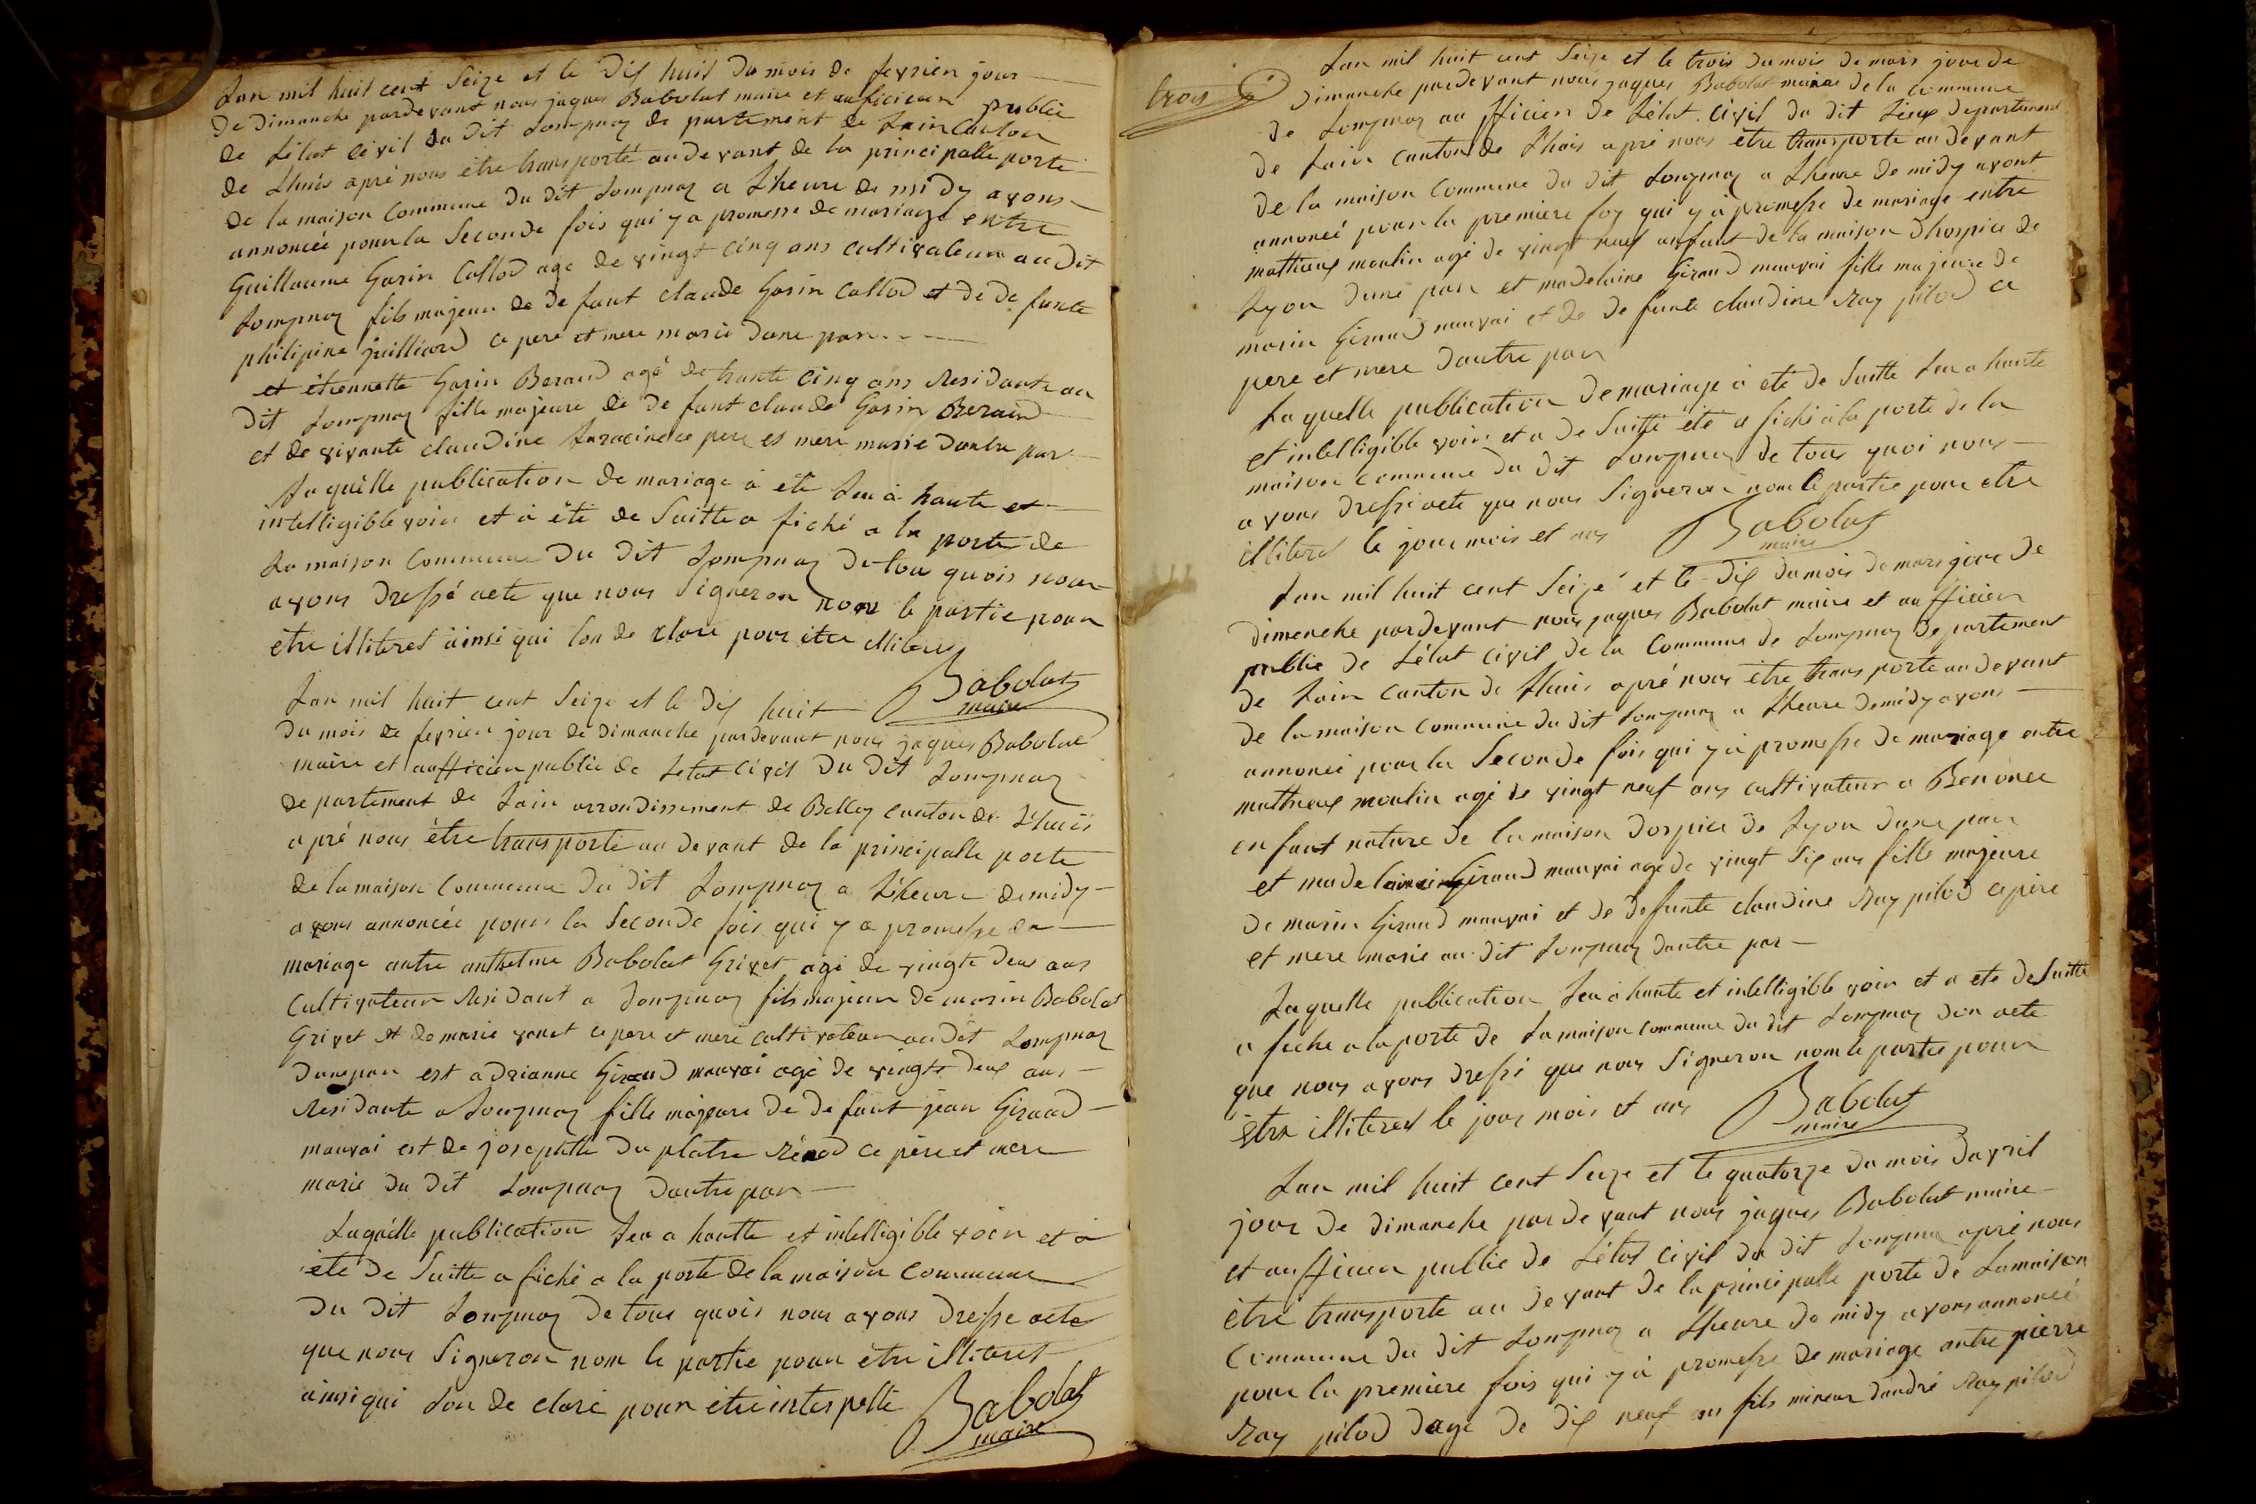 Lan mil huit cent Seize et le dix huit du mois de fevrier jour
de dimanche pardevant nous jaques Babolat maire et aufficier public
de Létat civil du dit Lompnaz departement de Lain Canton
de Lhuis apré nous être transporté audevant de la principalle porte
de la maison Commune du dit Lompnaz a Lheure de midy avons
annoncée pour la Seconde fois qui y a promesse de mariage entre
Guillaume Garin Collod age de vingt cinq ans cultivateur au dit
Lompnaz fils majeur de de funt claude Garin Collod et de de funte
philipine juilliard ce pere et mere marié dune par
et étiennette Garin Beraud agé de trante cinq ans Residante au
dit Lompnaz fille majeure de de funt claude Garin Beraud
et de vivante claudine ce pere et mere marie dautre par
Laquelle publication de mariage à eté Leu à haute et
intelligible voix et à éte de Suitte a fiché a la porte de
La maison Commune du dit Lompnaz de tou quois nous
avons dressé acte que nous Signeron non le partie pour
etre illiteret ainsi qui lon de clare pour etre illiteret
Babolat
maire
Lan mil huit cent Seize et le dix huit
du mois de fevrier jour de dimanche pardevant nous jaques Babolat
maire et aufficier public de Letat civil du dit Lompnaz
departement de Lain arrondissement de Belley canton de Lhuis
apré nous être transporte au devant de la principalle porte
de la maison Commune du dit Lompnaz a Lheure de midy
avons annoncée pour la Seconde fois qui y a promesse de
mariage antre anthelme Babolat Grivet agé de vingte deux ans
Cultivateur Residant a Lompnaz fils majeur de marin Babolat
Grivet et de marie vanet ce pere et mere cultivateur au dit Lompnaz
dunepar est adrianne Giraud mauvai agé de vingte deux ans
Residante a Lompnaz fille majeure de de funt jean Giraud
mauvai est de josephtte du platre Rénod ce père et mere
marie du dit Lompnaz dautre par
Laquelle publication Leu a hautte et intelligible voix et à
éte de Suitte a fiché a la porte de la maison Commune
du dit Lompnaz de tous quois nous avons dresse acte
que nous Signeron non le partie pour être illiteret
ainsi qui Lon de claré pour etre interpellé
Babolat
maire
trois
Lan mil huit cent Seize et le trois du mois de mars jour de
dimanche pardevant nous jaques Babolat maire de la Commune
de Lompnaz au fficier de Létat civil du dit Lieux departement
de Lain canton de Lhuis apré nous être transporte au devant
de la maison Commune du dit Lompnaz a Lheure de midy avont
annoncé pour la premiere foy qui y à promesse de mariage entre
mathieux moulin agé de vingt neuf anfant de la maison dhospice de
Lyon dune par et madelaine Giraud mauvai fille majeure de
marin Giraud mauvai et de de funte claudine Ray pilod ce
pere et mere dautre par
Laquelle publication de mariage à eté de Suitte Leu a haute
et intelligible voix et a de Suitte éte a fiché à la porte de la
maison commune du dit Lompnaz de tous quoi nous
avons dressé acte que nous Signeron non le partie pour etre
illiteret le jour mois et ans
Babolat
maire
Lan mil huit cent Seize et le dix du mois de mars jour de
dimenche pardevant nous jaques Babolat maire et aufficier
public de Létat civil de la Commune de Lompnaz departement
de Lain canton de Lhuis apré nous être trans porté au devant
de la maison commune du dit Lompnaz a Lheure de midy avons
annoncé pour la Seconde fois qui y à promesse de mariage entre
mathieux moulin agé de vingt neuf ans cultivateur a Benonce
enfant nature de la maison dospice de Lyon dune par
et madelaine Giraud mauvai age de vingt Six ans fille majeure
de marin Giraud mauvai et de defunte claudine Ray pilod cepère
et mere marie au dit Lompnaz dautre par
Laquelle publication Leu à haute et intelligible voix et a ete de Suitte
a fiche a la porte de La maison commune du dit Lompnaz don acte
que nous avons dressé que nous Signeron non le partie pour
être illiteret le jour mois et ans
Babolat
maire
Lan mil huit cent Seize et le quatorze du mois davril
jour de dimanche par de vant nous jaques Babolat maire
et aufficier public de Létat civil du dit Lompnaz apré nous
être transporte au de vant de la principalle porte de Lamaison
Commune du dit Lompnaz a Lheure de midy avons annoncé
pour la premiere fois qui y à promesse de mariage antre pierre
Ray pilod dage de dix neuf ans fils mineur dandré Ray pilod